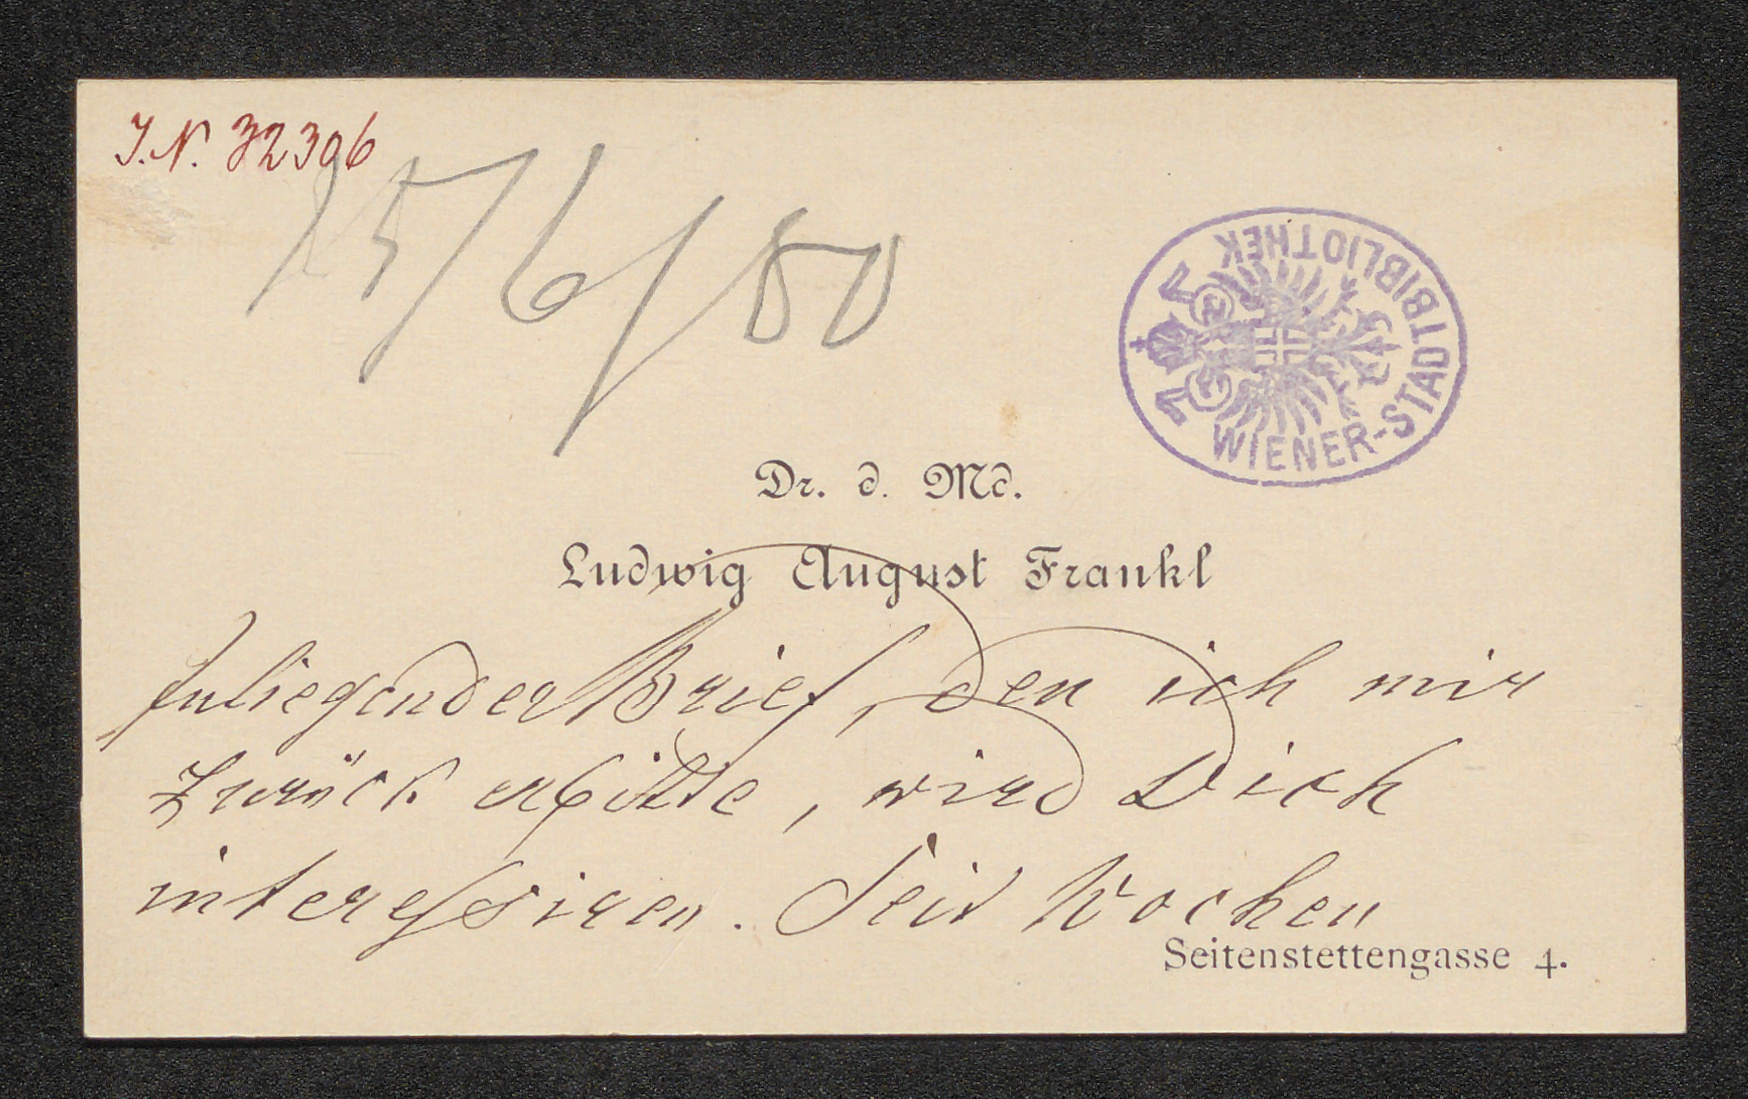 I.N. 32396
15/6/80
WIENER-STADTBIBLIOTHEK
Dr. d. Md.
Ludwig August Frankl
Inliegender Brief, den ich mir
zurück erbitte, wird Dich
interessiren. Seit Wochen
Seitenstettengasse 4.